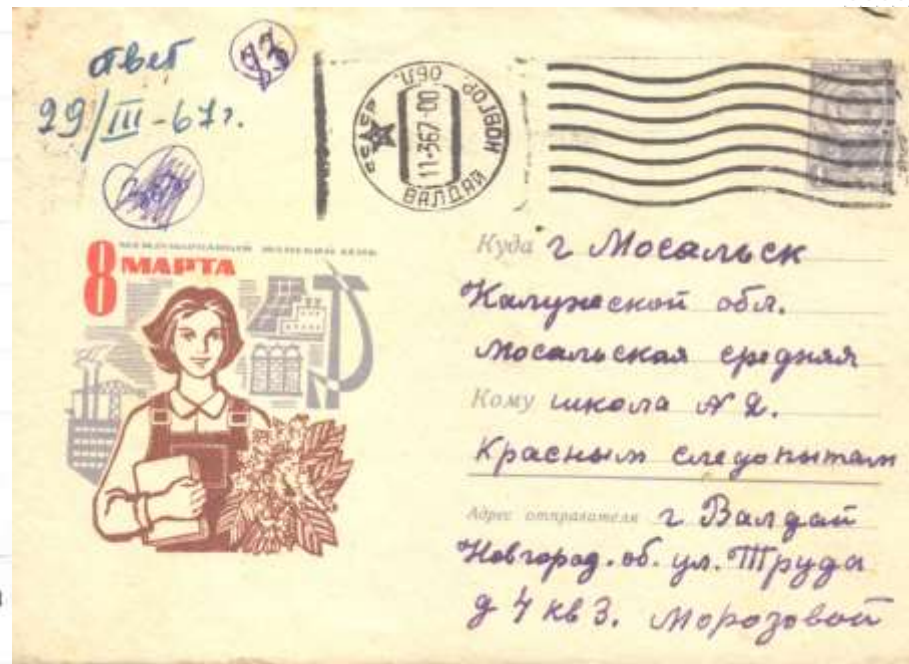 ответ
29/III-67г.
83
НОВГОР. ОБЛ.
11-367-00
ВАЛДАЙ
8 МЕЖДУНАРОДНЫЙ ЖЕНСКИЙ ДЕНЬ
МАРТА
Куда г Мосальск
Калужской обл.
Мосальская средняя
Кому школа № 2.
Красным следопытам
Адрес отправителя г Валдай
Новгород. об. ул. Труда
д 4 кв 3. Морозовой